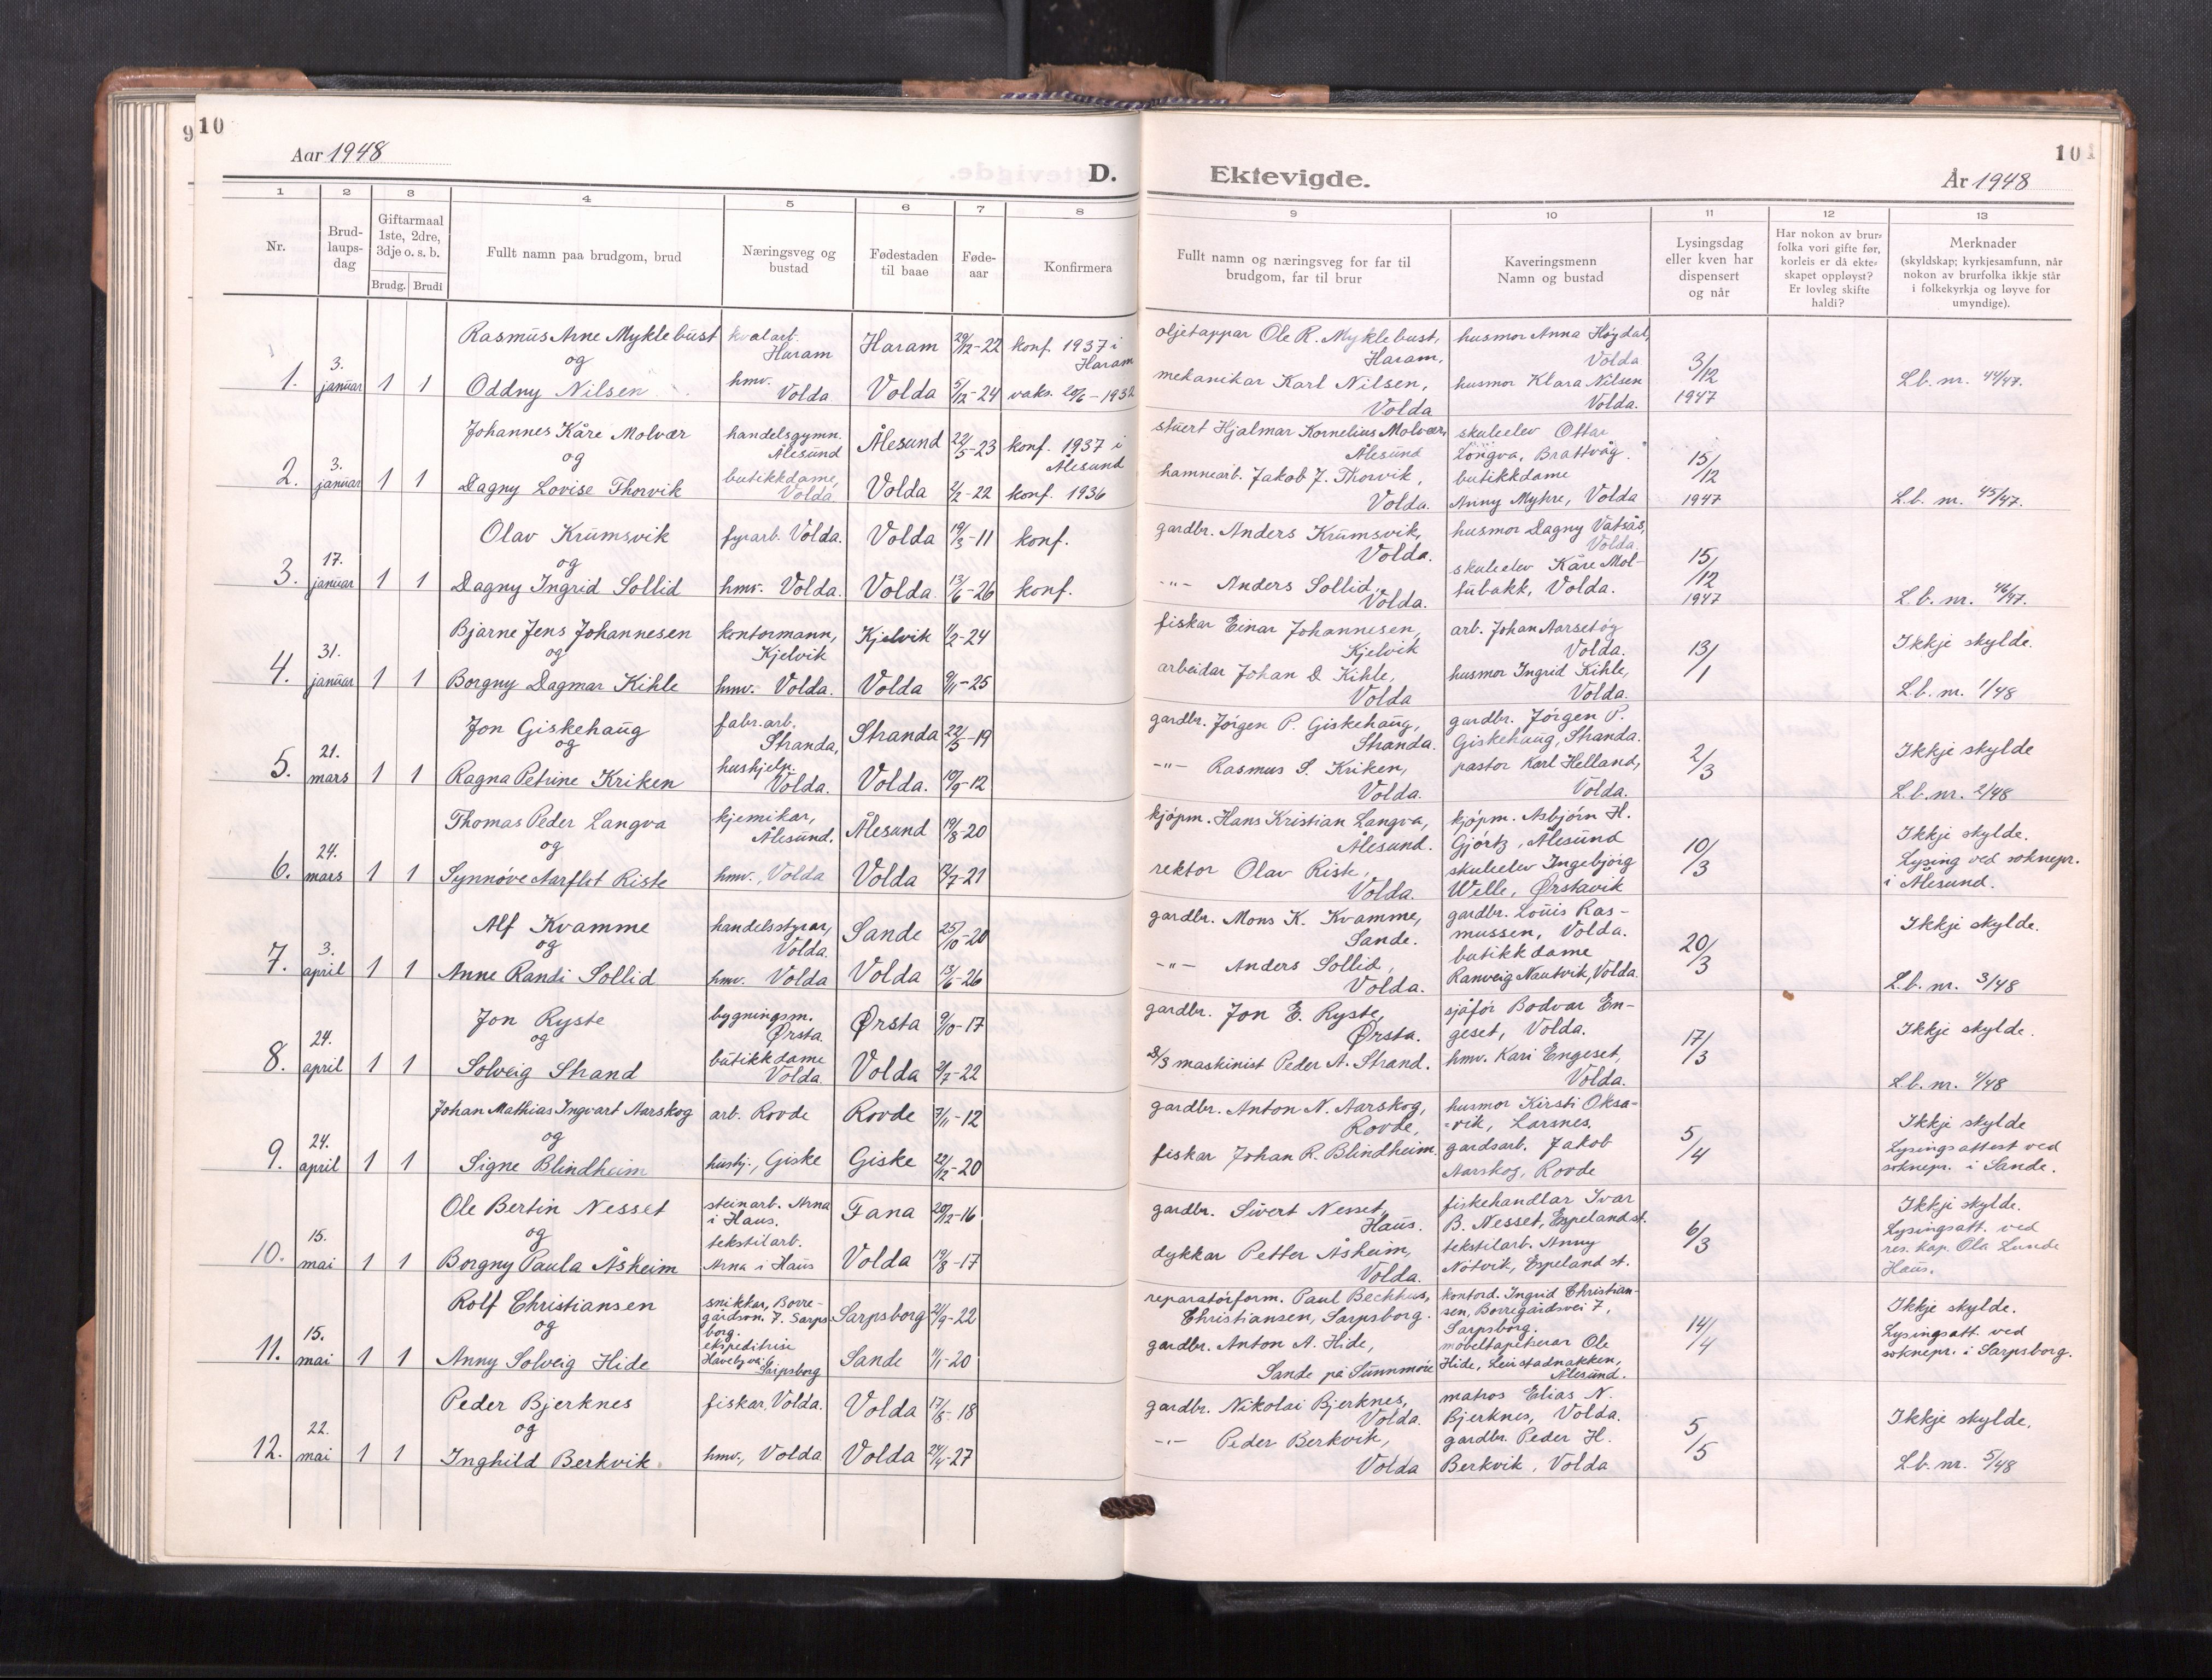 9 10
Aar 1948
D.
1 2 3 4 5 6 7 8
Nr.
Brud-
laups-
dag
Giftarmaal
1ste, 2dre,
3dje o. s. b.
Brudg. Brudi
Fullt namn paa brudgom, brud
Næringsveg og
bustad
Fødestaden
til baae
Føde-
aar
Konfirmera
10
Ektevigde.
År 1948
9 10 11 12 13
Fullt namn og næringsveg for far til
brudgom, far til brur
Kaveringsmenn
Namn og bustad
Lysingsdag
eller kven har
dispensert
og når
Har nokon av brur-
folka vori gifte før,
korleis er då ekte-
skapet oppløyst?
Er lovleg skifte
haldi?
Merknader
(skyldskap; kyrkjesamfunn, når
nokon av brurfolka ikkje står
i folkekyrkja og løyve for
umyndige).
1. 3. januar 1 1
Rasmus Arne Myklebust kvalarb. Haram Haram 29/12-22 konf. 1937 i Haram
og
Oddny Nilsen hmv. Volda Volda 5/12-24 vaks. 20/6-1932
oljetappar Ole R. Myklebust, Haram.
mekanikar Karl Nilsen, Volda
husmor Anna Høydal, Volda
husmor Klara Nilsen Volda.
3/12 1947
L.b. nr. 44/47.
2. 3. januar 1 1
Johannes Kåre Molvær handelsgymn. Ålesund Ålesund 22/5-23 konf. 1937 i Ålesund
og
Dagny Lovise Thorvik butikkdame, Volda Volda 2/2-22 konf. 1936
stuert Hjalmar Kornelius Molvær, Ålesund
hamnearb. Jakob J. Thorvik, Volda.
skuleelev Ottar Longva, Brattvåg.
butikkdame Anny Myhre, Volda
15/12 1947
L.b. nr. 45/47.
3. 17. januar 1 1
Olav Krumsvik fyrarb. Volda. Volda 19/3-11 konf.
og
Dagny Ingrid Sollid hmv. Volda. Volda. 13/6-26 konf.
gardbr. Anders Krumsvik, Volda.
-"- Anders Sollid, Volda.
husmor Dagny Vatsås, Volda
skuleelev Kåre Mol-
tubakk, Volda.
15/12 1947
L.b. nr. 46/47.
4. 31. januar 1 1
Bjarne Jens Johannesen kontormann, Kjelvik Kjelvik 1/2-24
og
Borgny Dagmar Kihle hmv. Volda. Volda 9/11-25
fiskar Einar Johannesen, Kjelvik
arbeidar Johan D Kihle, Volda
arb. Johan Aarsetøy Volda.
husmor Ingrid Kihle, Volda.
13/1
Ikkje skylde.
L.b. nr. 1/48
5. 21. mars 1 1
Jon Giskehaug fabr.arb. Stranda, Stranda 22/5-19
og
Ragna Petrine Kriken hushjelp. Volda. Volda. 10/9-12
gardbr. Jørgen P. Giskehaug, Stranda.
-"- Rasmus S. Kriken, Volda.
gardbr. Jørgen P.
Giskehaug, Stranda.
pastor Karl Helland, Volda.
2/3
Ikkje skylde
L.b. nr. 2/48
6. 24. mars 1 1
Thomas Peder Langva kjemikar, Ålesund. Ålesund 19/8-20
og
Synnøve Aarflot Riste hmv., Volda Volda /7-21
kjøpm. Hans Kristian Langva, Ålesund.
rektor Olav Riste, Volda.
kjøpm. Asbjørn H.
Gjørtz, Ålesund
skuleelev Ingebjørg
Welle, Ørstavik
10/3
Ikkje skylde.
Lysing ved soknepr.
i Ålesund.
7. 3. april 1 1
Alf Kvamme handelsstyrar, Volda. Sande 25/10-20
og
Anne Randi Sollid hmv. Volda Volda 13/6-26
gardbr. Mons K. Kvamme, Sande.
-"- Anders Sollid, Volda.
gardbr. Louis Ras-
mussen, Volda.
butikkdame
Ranveig Nautvik, Volda.
20/3
Ikkje skylde.
L.b. nr. 3/48
8. 24. april 1 1
Jon Ryste bygningsm. Ørsta Ørsta 9/10-17
og
Solveig Strand butikkdame Volda. Volda /7-22
gardbr. Jon E. Ryste, Ørsta.
D/S maskinist Peder A. Strand.
sjåfør Bodvar En-
geset, Volda.
hmv. Kari Engeset, Volda.
17/3
Ikkje skylde.
L.b. nr. 4/48
9. 24. april 1 1
Johan Mathias Ingvart Aarskog arb. Rovde Rovde 7/11-12
og
Signe Blindheim hushj., Giske Giske 22/12-20
gardbr. Anton N. Aarskog, Rovde,
fiskar Johan R. Blindheim.
husmor Kirsti Oksa-
vik, Larsnes,
gardsarb. Jakob
Aarskog, Rovde
5/4
Ikkje skylde
Lysingsattest ved
soknepr. i Sande.
10. 15. mai 1 1
Ole Bertin Nesset steinarb. Arna i Haus. Fana 20/12-16
og
Borgny Paula Åsheim tekstilarb. Arna i Haus Volda 19/8-17
gardbr. Sivert Nesset, Haus.
dykkar Petter Åsheim, Volda.
fiskehandlar Ivar
B. Nesset, Espeland st.
tekstilarb. Anny
Nøtvik, Espeland st.
6/3
Ikkje skylde.
Lysingsatt. ved
res. kap. Ola Lunde
Haus.
11. 15. mai 1 1
Rolf Christiansen snikkar, Borre-
gårdsvn. 7. Sarps-
borg. Sarpsborg 21/9-22
og
Anny Solveig Hide ekspeditrise Sarpsborg Sande 11/1-20
reparatørform. Paul Bechhus,
Christiansen, Sarpsborg.
gardbr. Anton A. Hide,
Sande på Sunnmøre
kontord. Ingrid Christian-
sen, Borregårdsvei 7,
Sarpsborg.
møbeltapetserar Ole
Hide, Leistadnakken,
Ålesund.
14/4
Ikkje skylde.
Lysingsatt. ved
soknepr. i Sarpsborg.
12. 22. mai 1 1
Peder Bjerknes fiskar, Volda. Volda 17/8-18
og
Inghild Berkvik. hmv., Volda Volda 24/4-27
gardbr. Nikolai Bjerknes, Volda.
-"- Peder Berkvik, Volda
matros Elias N.
Bjerknes, Volda.
gardbr. Peder H.
Berkvik, Volda
5/5
Ikkje skylde.
L.b. nr. 5/48